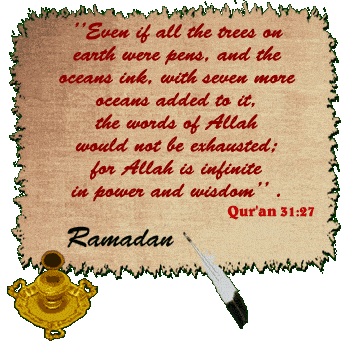 ''Even if all the trees on
earth were pens, and the
oceans ink, with seven more
oceans added to it,
the words of Allah
would not be exhausted;
for Allah is infinite
in power and wisdom'' .
Qur'an 31:27
Ramadan